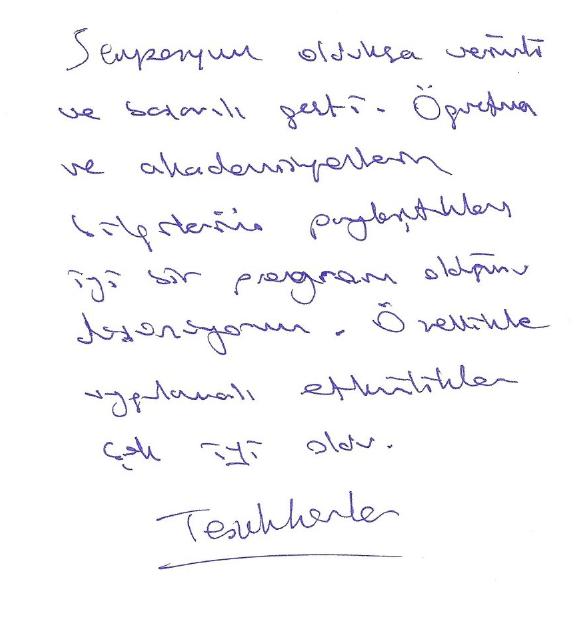 Sempozyum oldukça verimli
ve başarılı geçti. Öğretmen
ve akademisyenlerin
bilgilerini paylaştıkları
iyi bir program olduğunu
düşünüyorum. Özellikle
uygulamalı etkinlikler
çok iyi oldu.
Teşekkürler